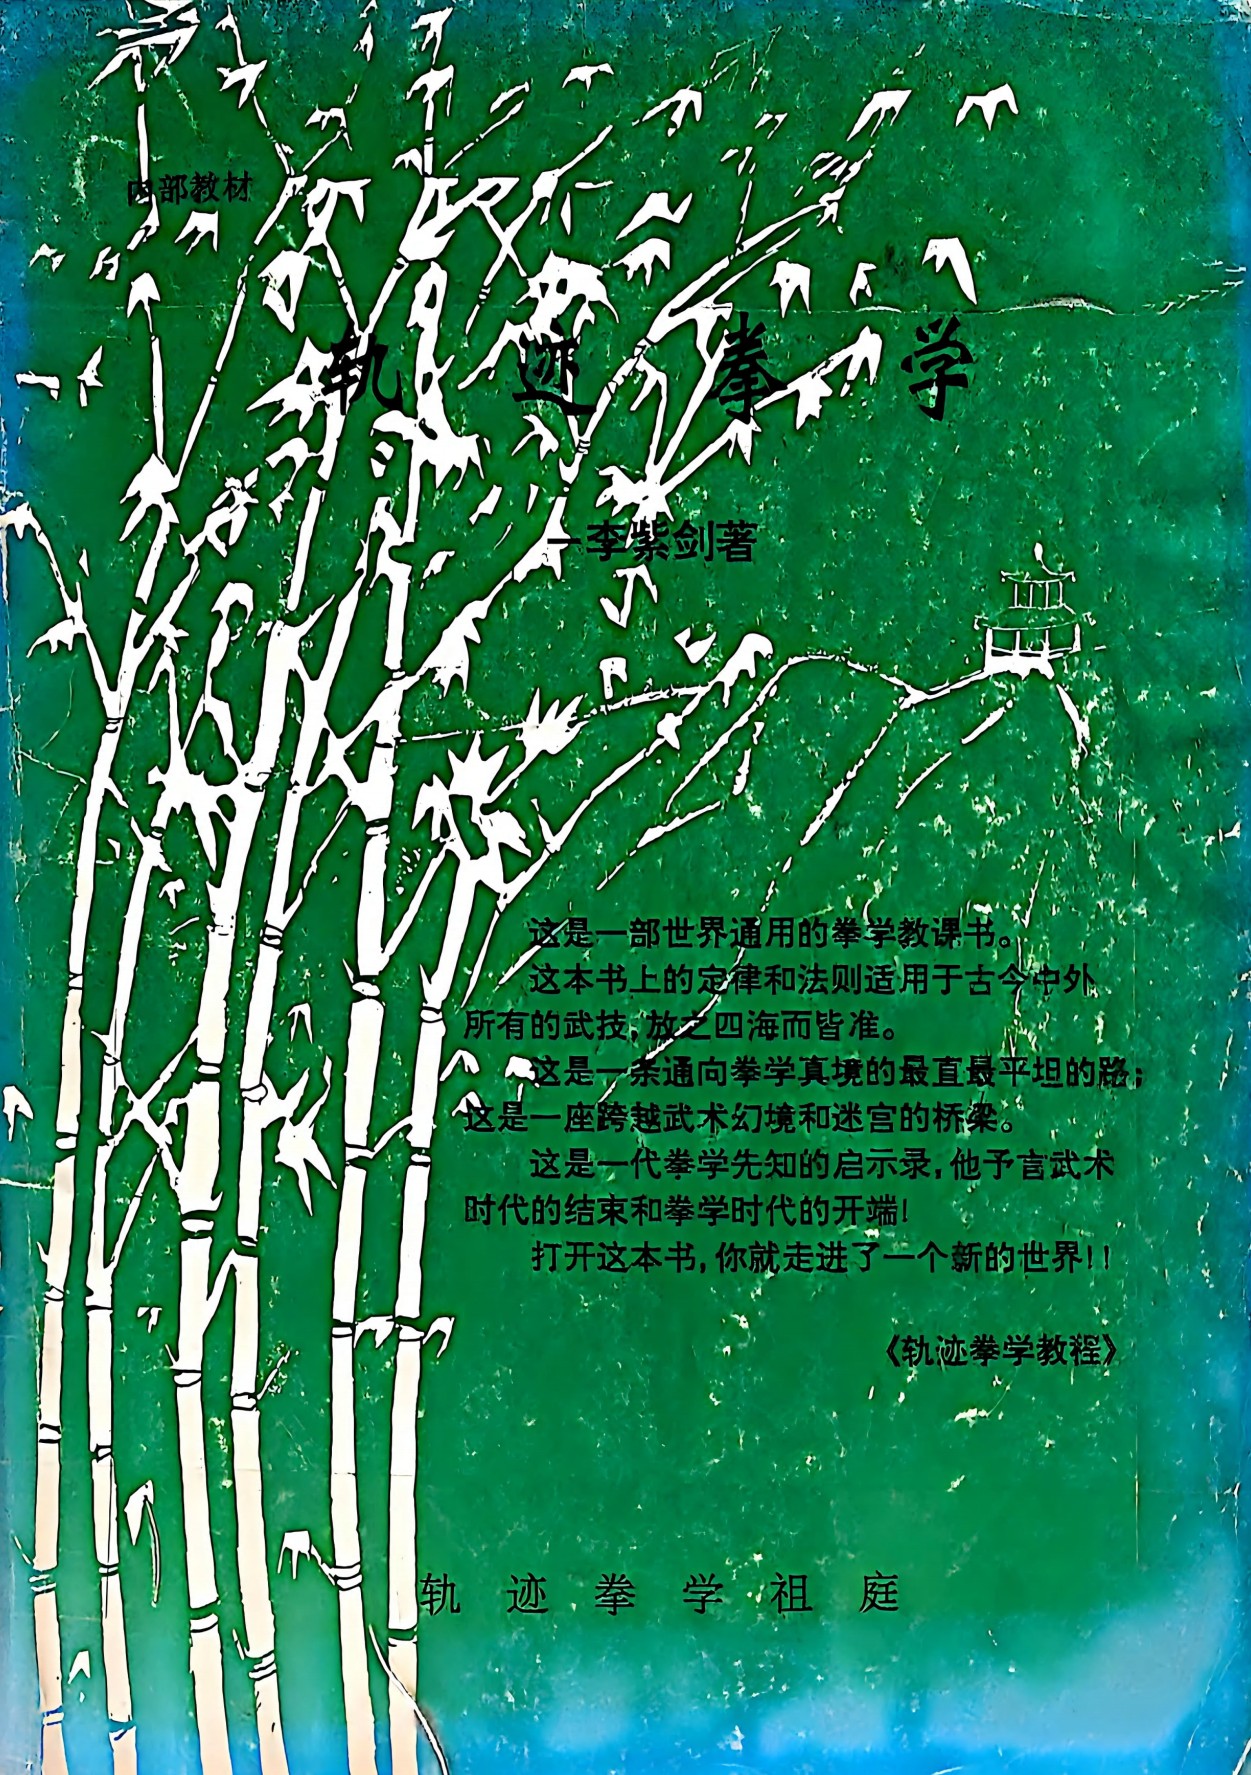 内部教材
轨迹拳学
—李紫剑著
这是一部世界通用的拳学教课书。
这本书上的定律和法则适用于古今中外
所有的武技,放之四海而皆准。
这是一条通向拳学真境的最直最平坦的路;
这是一座跨越武术幻境和迷宫的桥梁。
这是一代拳学先知的启示录,他予言武术
时代的结束和拳学时代的开端!
打开这本书,你就走进了一个新的世界!!
《轨迹拳学教程》
轨迹拳学祖庭